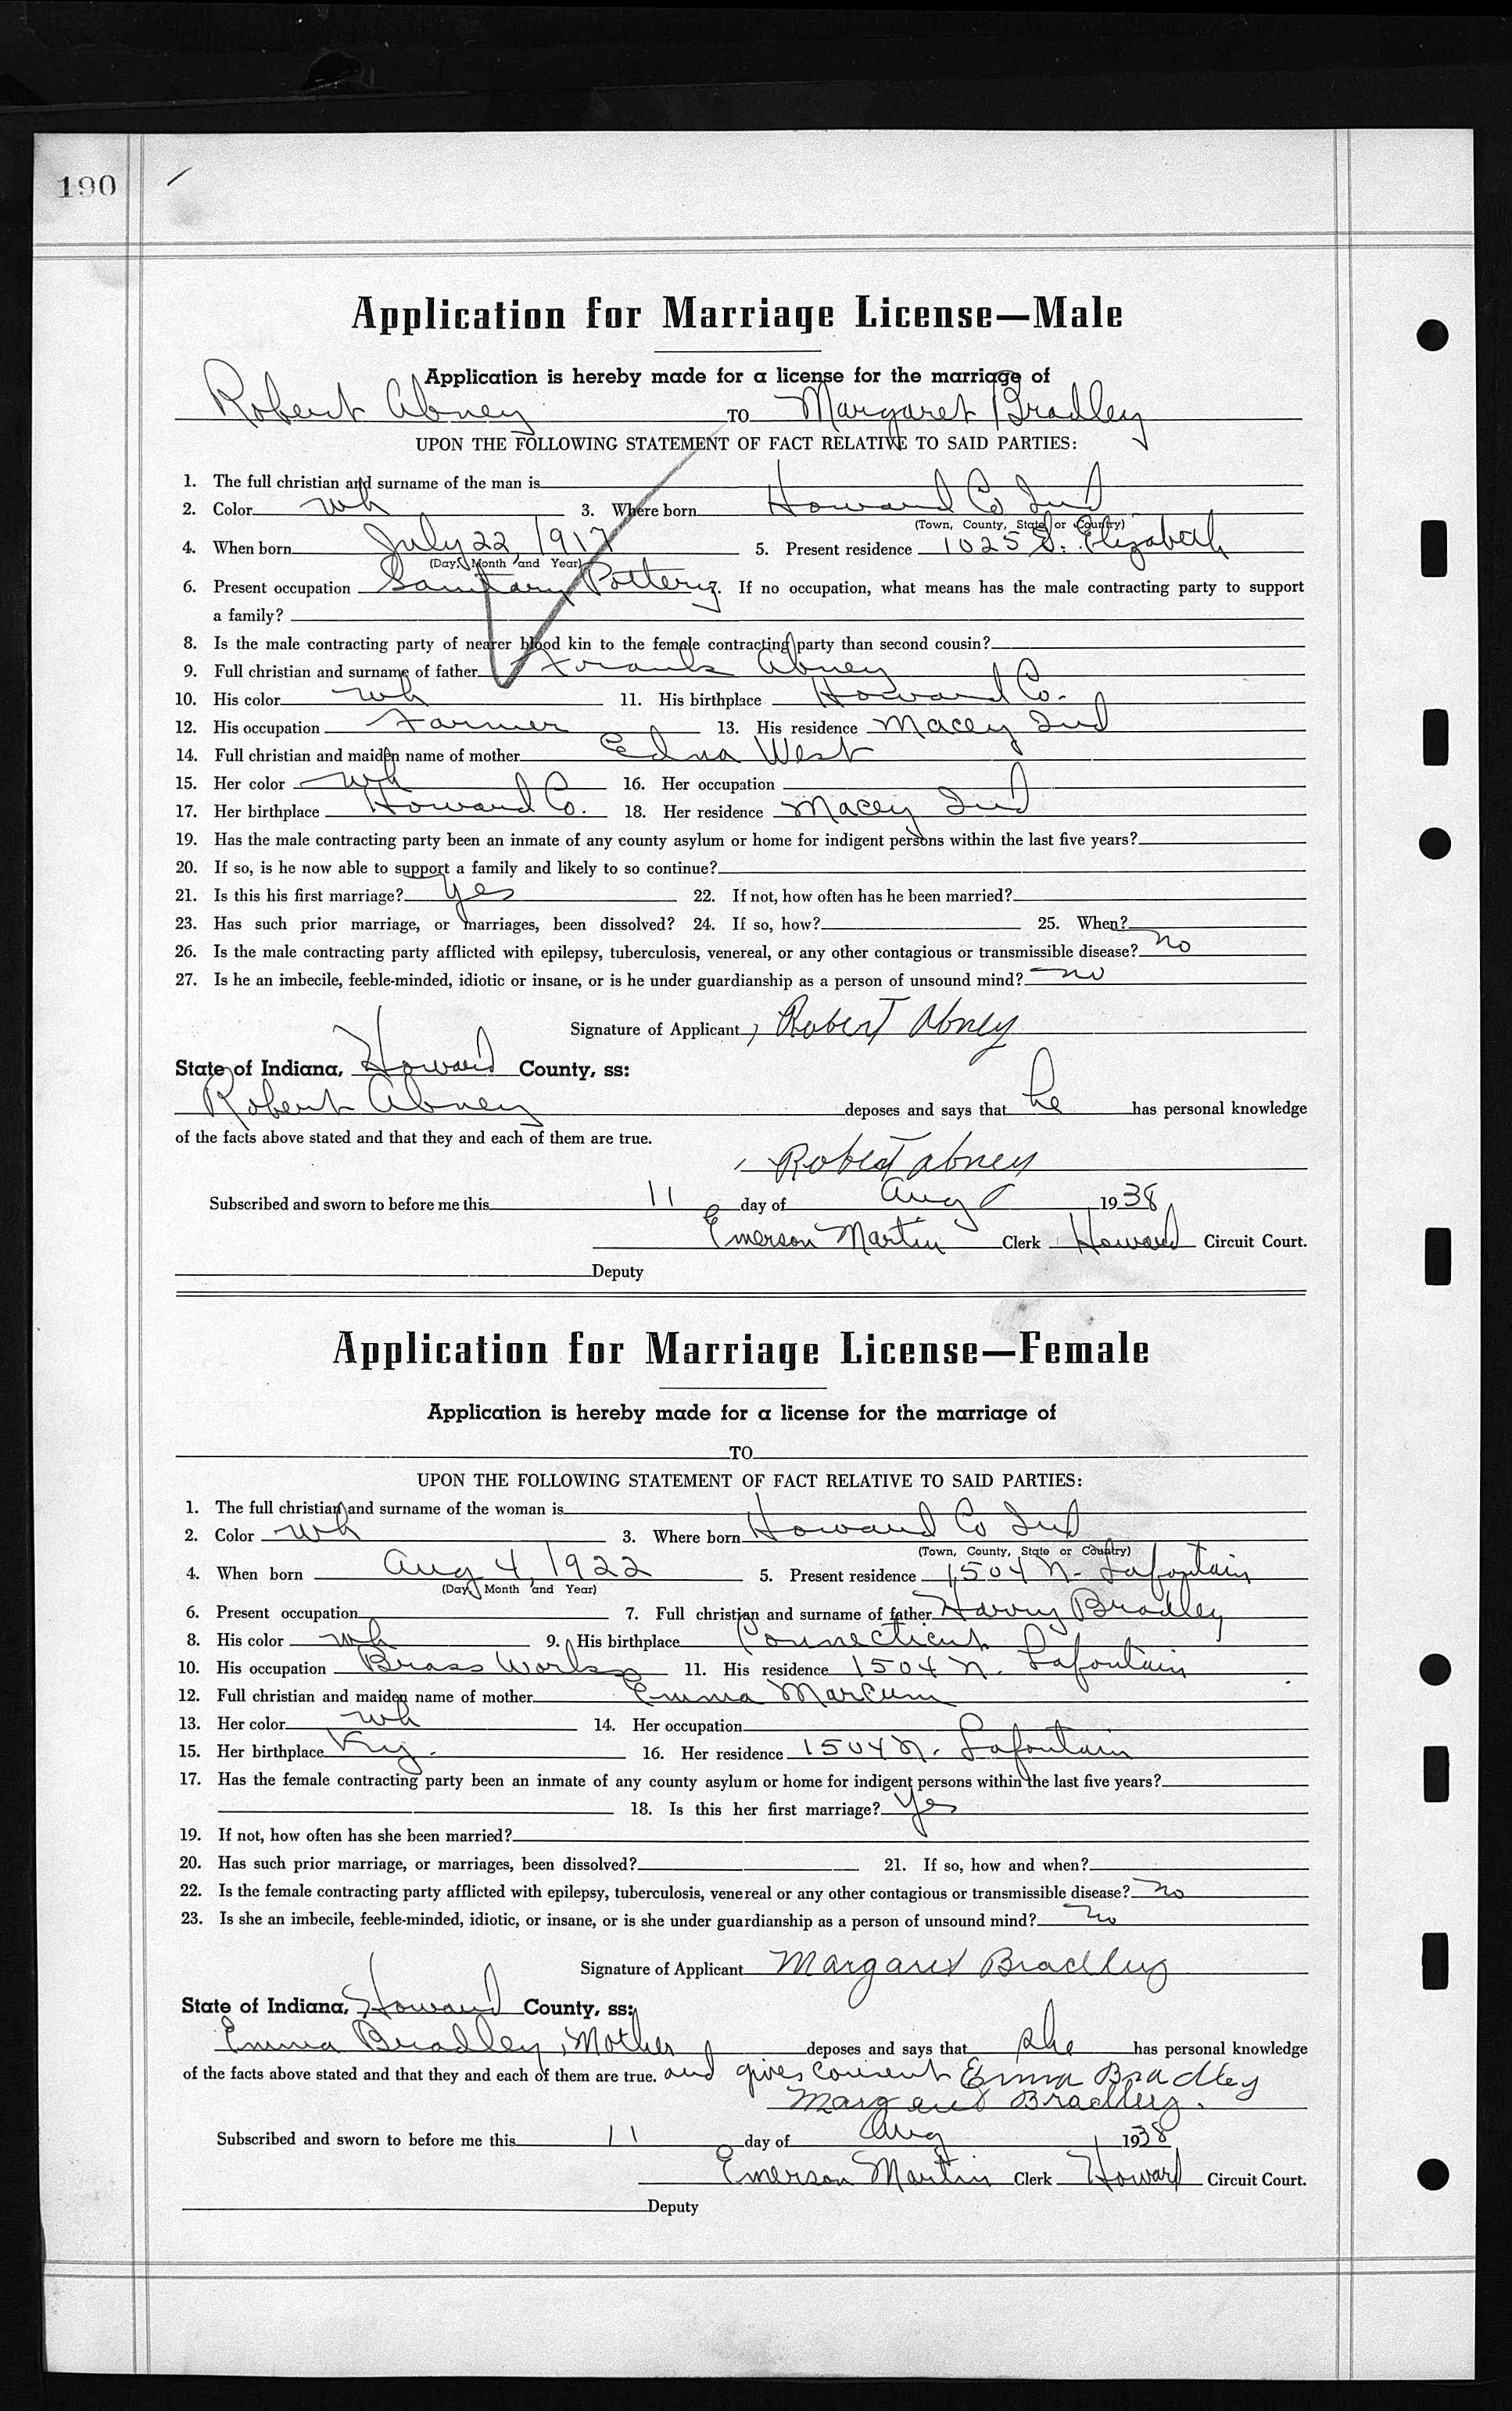 190
Application for Marriage License—Male
Application is hereby made for a license for the marriage of
Robert Abney TO Margaret Bradley
UPON THE FOLLOWING STATEMENT OF FACT RELATIVE TO SAID PARTIES:
1. The full christian and surname of the man is
2. Color wh 3. Where born Howard Co Ind
(Town, County, State or Country)
4. When born July 22, 1917 5. Present residence 1025 S. Elizabeth
(Day, Month and Year)
6. Present occupation Sanitary Pottery. If no occupation, what means has the male contracting party to support
a family?
8. Is the male contracting party of nearer blood kin to the female contracting party than second cousin?
9. Full christian and surname of father Frank Abney
10. His color wh 11. His birthplace Howard Co.
12. His occupation Farmer 13. His residence Macey Ind
14. Full christian and maiden name of mother Edna West
15. Her color wh 16. Her occupation
17. Her birthplace Howard Co. 18. Her residence Macey Ind
19. Has the male contracting party been an inmate of any county asylum or home for indigent persons within the last five years?
20. If so, is he now able to support a family and likely to so continue?
21. Is this his first marriage? Yes 22. If not, how often has he been married?
23. Has such prior marriage, or marriages, been dissolved? 24. If so, how? 25. When?
26. Is the male contracting party afflicted with epilepsy, tuberculosis, venereal, or any other contagious or transmissible disease? no
27. Is he an imbecile, feeble-minded, idiotic or insane, or is he under guardianship as a person of unsound mind? no
Signature of Applicant Robert Abney
State of Indiana, Howard County, ss:
Robert Abney deposes and says that he has personal knowledge
of the facts above stated and that they and each of them are true.
Robert Abney
Subscribed and sworn to before me this 11 day of Aug 1938
Emerson Martin Clerk Howard Circuit Court.
Deputy
Application for Marriage License—Female
Application is hereby made for a license for the marriage of
TO
UPON THE FOLLOWING STATEMENT OF FACT RELATIVE TO SAID PARTIES:
1. The full christian and surname of the woman is
2. Color wh 3. Where born Howard Co Ind
(Town, County, State or Country)
4. When born Aug 4, 1922 5. Present residence 1504 N. Lafontain
(Day, Month and Year)
6. Present occupation 7. Full christian and surname of father Harry Bradley
8. His color wh 9. His birthplace Connecticut
10. His occupation Brass Works 11. His residence 1504 N. Lafontain
12. Full christian and maiden name of mother Emma Marcum
13. Her color wh 14. Her occupation
15. Her birthplace Ky. 16. Her residence 1504 N. Lafontain
17. Has the female contracting party been an inmate of any county asylum or home for indigent persons within the last five years?
18. Is this her first marriage? Yes
19. If not, how often has she been married?
20. Has such prior marriage, or marriages, been dissolved? 21. If so, how and when?
22. Is the female contracting party afflicted with epilepsy, tuberculosis, venereal or any other contagious or transmissible disease? no
23. Is she an imbecile, feeble-minded, idiotic, or insane, or is she under guardianship as a person of unsound mind? no
Signature of Applicant Margaret Bradley
State of Indiana, Howard County, ss:
Emma Bradley, Mother deposes and says that she has personal knowledge
of the facts above stated and that they and each of them are true. and gives consent Emma Bradley
Margaret Bradley.
Subscribed and sworn to before me this 11 day of Aug 1938
Emerson Martin Clerk Howard Circuit Court.
Deputy